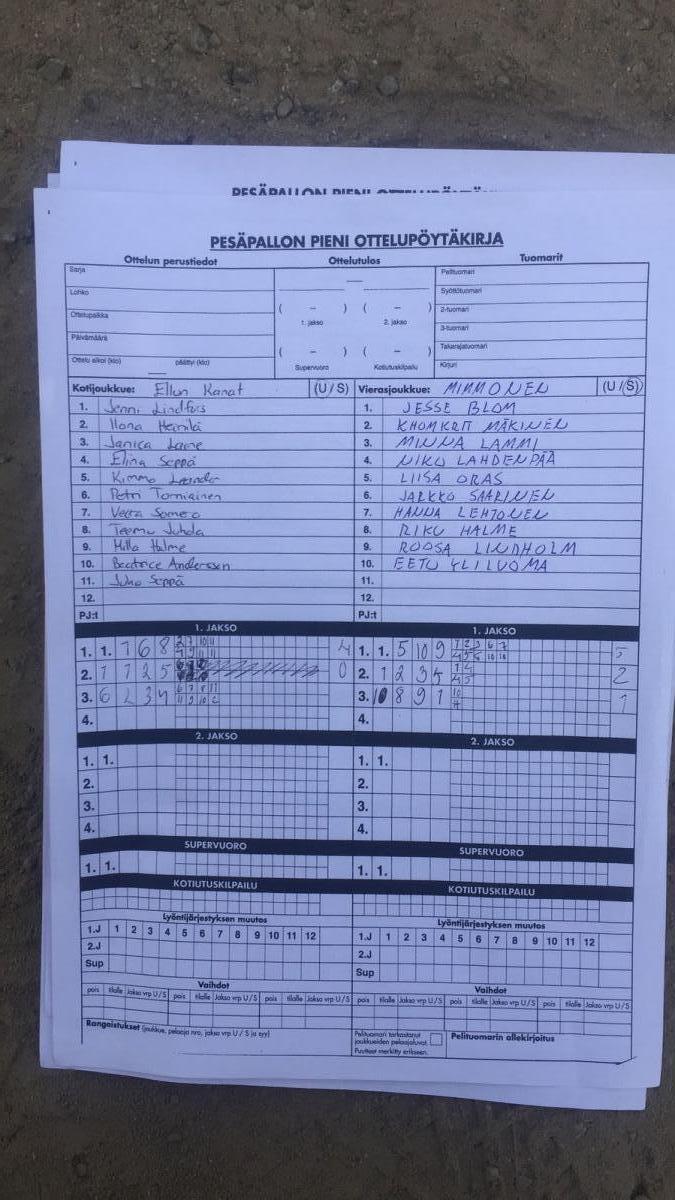 PESÄPALLON PIENI OTTELUPÖYTÄKIRJA
Ottelun perustiedot Ottelutulos Tuomarit
Sarja
Lohko
Ottelupaikka
Päivämäärä
Ottelu alkoi (klo) päättyi (klo)
( – ) ( – )
1. jakso 2. jakso
( – ) ( – )
Supervuoro Kotiutuskilpailu
Pelituomari
Syöttötuomari
2-tuomari
3-tuomari
Takarajatuomari
Kirjuri
Kotijoukkue: Ellun Kanat (U / S)
1. Jenni Lindfors
2. Ilona Heinilä
3. Janica
4. Elina Seppä
5. Kimmo
6. Petri Torniainen
7. Veera Somero
8. Teemu Juhola
9. Milla Halme
10. Beatrice Anderssen
11. Juho Seppä
12.
PJ:t
Vierasjoukkue: MIMMONEN (U / S)
1. JESSE BLOM
2. KHOMKRIT MÄKINEN
3. MINNA LAMMI
4. NIKO LAHDENPÄÄ
5. LIISA ORAS
6. JARKKO SAARINEN
7. HANNA LEHTONEN
8. RIKU HALME
9. ROOSA LINDHOLM
10. EETU YLILUOMA
11.
12.
PJ:t
1. JAKSO
1. 1. 1 6 8 4
2. 1 1 2 5 0
3. 6 2 3 4
4.
1. JAKSO
1. 1. 5 10 9 5
2. 1 2 3 4 2
3. 8 9 1 1
4.
2. JAKSO
1. 1.
2.
3.
4.
2. JAKSO
1. 1.
2.
3.
4.
SUPERVUORO SUPERVUORO
1. 1. 1. 1.
KOTIUTUSKILPAILU KOTIUTUSKILPAILU
Lyöntijärjestyksen muutos Lyöntijärjestyksen muutos
1.J 1 2 3 4 5 6 7 8 9 10 11 12 1.J 1 2 3 4 5 6 7 8 9 10 11 12
2.J 2.J
Sup Sup
Vaihdot Vaihdot
pois tilalle Jakso vrp U / S pois tilalle Jakso vrp U / S pois tilalle Jakso vrp U / S pois tilalle Jakso vrp U / S pois tilalle Jakso vrp U / S pois tilalle Jakso vrp U / S
Rangaistukset (joukkue, pelaaja nro, jakso vrp U / S ja syy)
Pelituomari tarkastanut
joukkueiden pelaajaluvat.
Puutteet merkitty erikseen.
Pelituomarin allekirjoitus